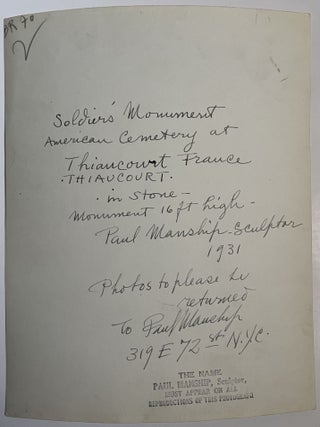 BK 70
Soldiers' Monument
American Cemetery at
Thiaucourt France
THIAUCOURT.
in stone -
Monument 16 ft high -
Paul Manship - Sculptor
1931
Photos to please be
returned
To Paul Manship
319 E 72 st N.Y.C.
THE NAME
PAUL MANSHIP, Sculptor,
MUST APPEAR ON ALL
REPRODUCTIONS OF THIS PHOTOGRAPH